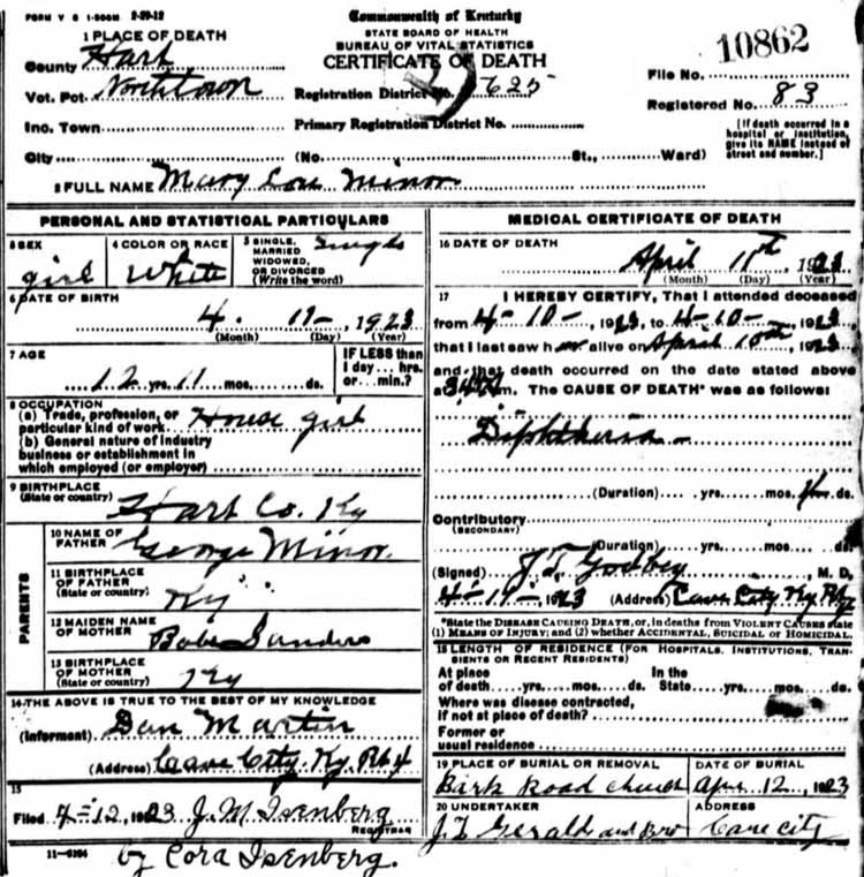 FORM V S 1-500M 2-29-12
Commonwealth of Kentucky
STATE BOARD OF HEALTH
BUREAU OF VITAL STATISTICS
CERTIFICATE OF DEATH
1 PLACE OF DEATH
County Hart
Vot. Pct. Northtown
Inc. Town
City (No. St., Ward)
Registration District No. 625
Primary Registration District No.
10862
File No.
Registered No. 83
[If death occurred in a
hospital or institution,
give its NAME instead of
street and number.]
2 FULL NAME Mary Lou Minor
PERSONAL AND STATISTICAL PARTICULARS
3 SEX girl
4 COLOR OR RACE White
5 SINGLE, MARRIED WIDOWED, OR DIVORCED (Write the word) Single
6 DATE OF BIRTH
4 - 11 - , 1923
(Month) (Day) (Year)
7 AGE
12 yrs. 11 mos. ds.
IF LESS than
1 day... hrs.
or... min.?
8 OCCUPATION
(a) Trade, profession, or
particular kind of work House girl
(b) General nature of industry
business or establishment in
which employed (or employer)
9 BIRTHPLACE
(State or country) Hart Co. Ky
PARENTS
10 NAME OF
FATHER George Minor
11 BIRTHPLACE
OF FATHER
(State or country) Ky
12 MAIDEN NAME
OF MOTHER Babe Sanders
13 BIRTHPLACE
OF MOTHER
(State or country) Ky
14 THE ABOVE IS TRUE TO THE BEST OF MY KNOWLEDGE
(Informant) Dan Martin
(Address) Cave City, Ky. R#4
15
Filed 4-12, 1923 J. M. Isenberg
REGISTRAR
11-6104
by Cora Isenberg.
MEDICAL CERTIFICATE OF DEATH
16 DATE OF DEATH
April 11th, 1923
(Month) (Day) (Year)
17 I HEREBY CERTIFY, That I attended deceased
from 4-10-, 1923, to 4-10-, 1923
that I last saw her alive on April 10th, 1923
and that death occurred on the date stated above
at m. The CAUSE OF DEATH* was as follows:
Diphtheria -
(Duration) yrs. mos. ds.
Contributory
(SECONDARY)
(Duration) yrs. mos. ds.
(Signed) J. T. Godbey, M. D.
4-11-, 1923 (Address) Cave City Ky
*State the DISEASE CAUSING DEATH, or, in deaths from VIOLENT CAUSES state
(1) MEANS OF INJURY; and (2) whether ACCIDENTAL, SUICIDAL or HOMICIDAL.
18 LENGTH OF RESIDENCE (FOR HOSPITALS, INSTITUTIONS, TRAN-
SIENTS OR RECENT RESIDENTS)
At place In the
of death yrs. mos. ds. State yrs. mos. ds.
Where was disease contracted,
if not at place of death?
Former or
usual residence
19 PLACE OF BURIAL OR REMOVAL
Bark Road church
DATE OF BURIAL
Apr. 12, 1923
20 UNDERTAKER
J. T. Gerald and Bro
ADDRESS
Cave city